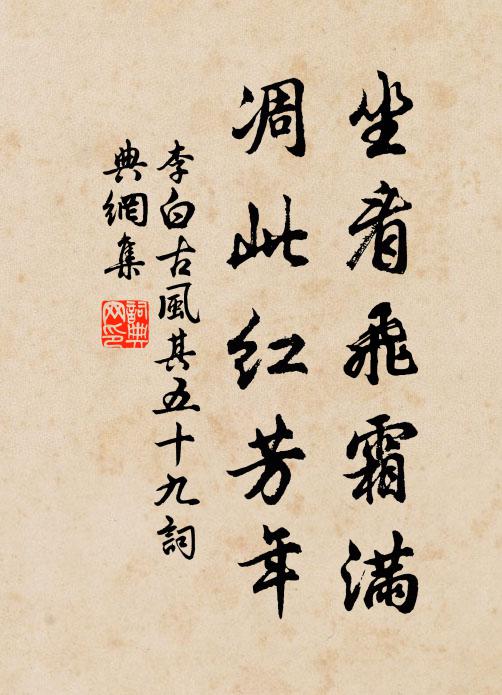 坐看飛霜滿
凋此红芳年
李白古風其五十九詞
典網集
詞典网印